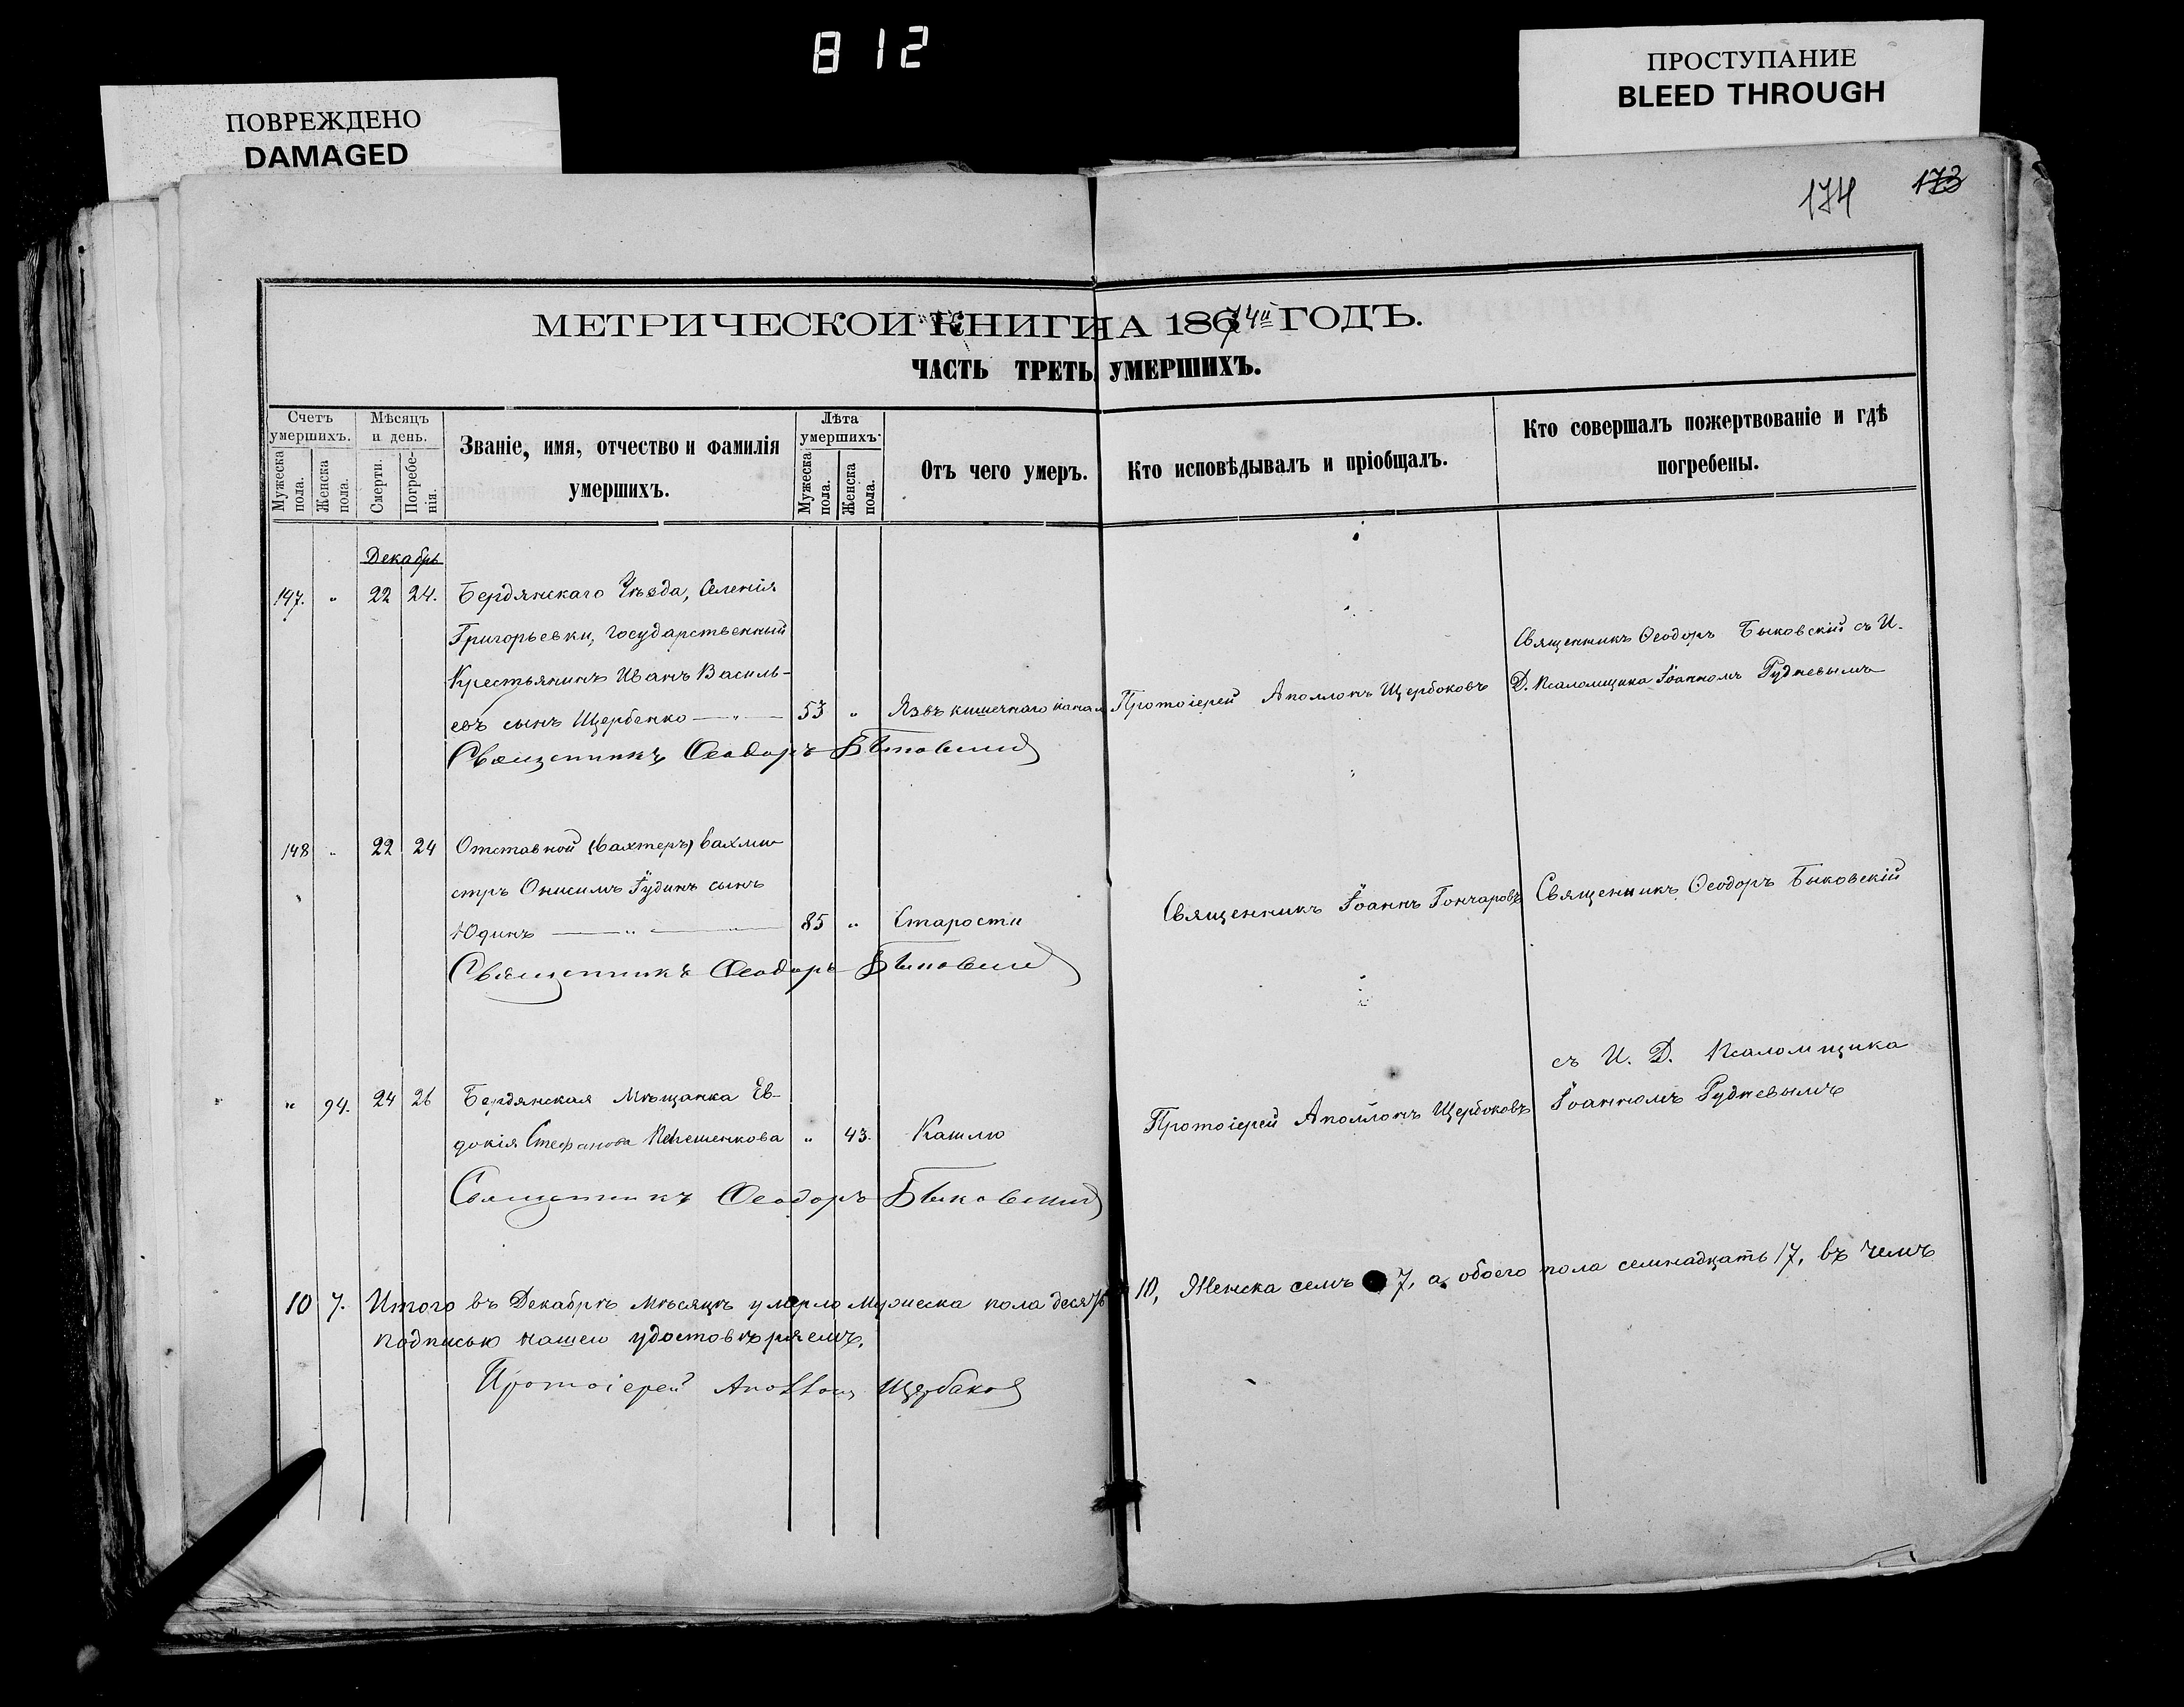 812
ПОВРЕЖДЕНО
DAMAGED
ПРОСТУПАНИЕ
BLEED THROUGH
174 173
МЕТРИЧЕСКОЙ КНИГИ НА 1874й ГОДЪ.
ЧАСТЬ ТРЕТЬ УМЕРШИХЪ.
Счетъ умершихъ.
Мужеска пола.
Женска пола.
Мѣсяцъ и день.
Смерти.
Погребе-
нія.
Званіе, имя, отчество и фамилія
умершихъ.
Лѣта умершихъ.
Мужеска пола.
Женска пола.
Отъ чего умеръ.
Кто исповѣдывалъ и пріобщалъ.
Кто совершалъ пожертвованіе и гдѣ
погребены.
Декабрь
147. " 22 24. Бердянскаго Уѣзда, Селенія
Григорьевки, Государственный
Крестьянинъ Иванъ Василь-
евъ сынъ Щербенко — " — 53 " Язвъ кишечнаго канал Протоіерей Аполлонъ Щербоковъ
Священникъ Ѳеодоръ Быковскій съ И.
Д. Псаломщика Іоанномъ Рудневымъ
Священникъ Ѳеодоръ Быковский
148 " 22 24 Отставной (вахтеръ) вахми-
стръ Онисимъ Іудинъ сынъ
Юдинъ — " — 85 " Старости Священникъ Іоаннъ Гончаровъ Священникъ Ѳеодоръ Быковскій
Священникъ Ѳеодоръ Быковский
" 94. 24 26 Бердянская Мѣщанка Ев-
докія Стефанова " 43. Кашлю Протоіерей Аполлонъ Щербоковъ
съ И. Д. Псаломщика
Іоанномъ Рудневымъ
Священникъ Ѳеодоръ Быковский
10 7. Итого въ Декабрѣ мѣсяцѣ умерло Мужеска пола десять 10, Женска семь 7, а обоего пола семнадцать 17, въ чемъ
подписью нашею удостовѣряемъ.
Протоіерей Аполлонъ Щербаков